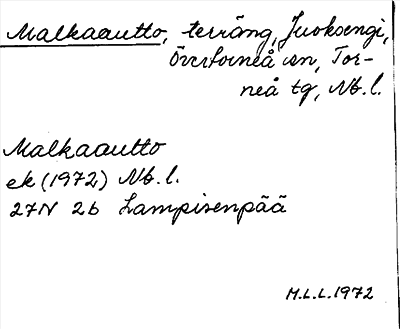 Malkaautto, terräng, Juoksengi,
Övertorneå sn, Tor-
neå tg, Nb.l.
Malkaautto
ek (1972) Nb.l.
27N 2b Lampisenpää
M.L.L. 1972